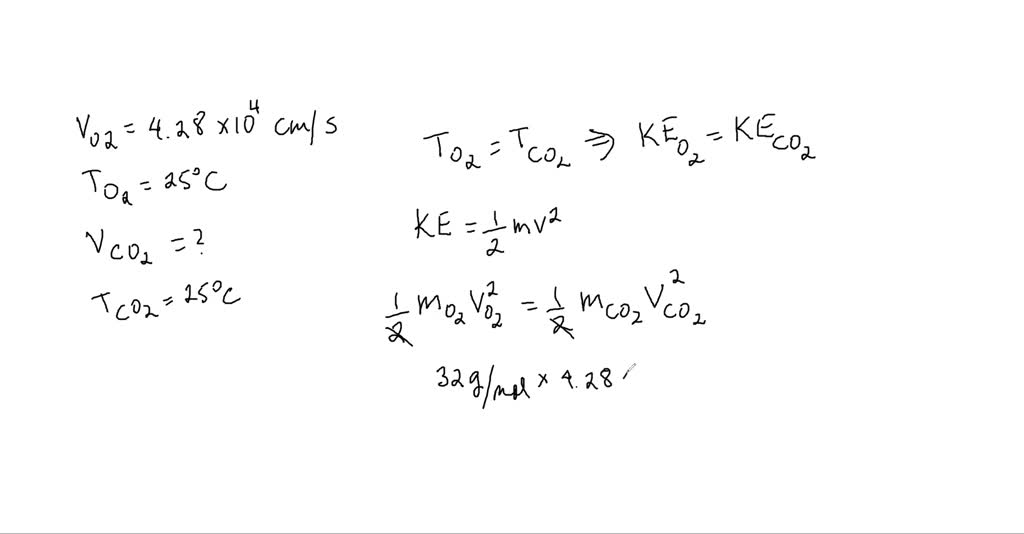 V_O2 = 4.28 × 10^4 cm/s
T_O2 = 25°C
V_CO2 = ?
T_CO2 = 25°C
T_O2 = T_CO2 ⇒ KE_O2 = KE_CO2
KE = 1/2 mv^2
1/2 m_O2 V_O2^2 = 1/2 m_CO2 V_CO2^2
32g/mol × 4.28